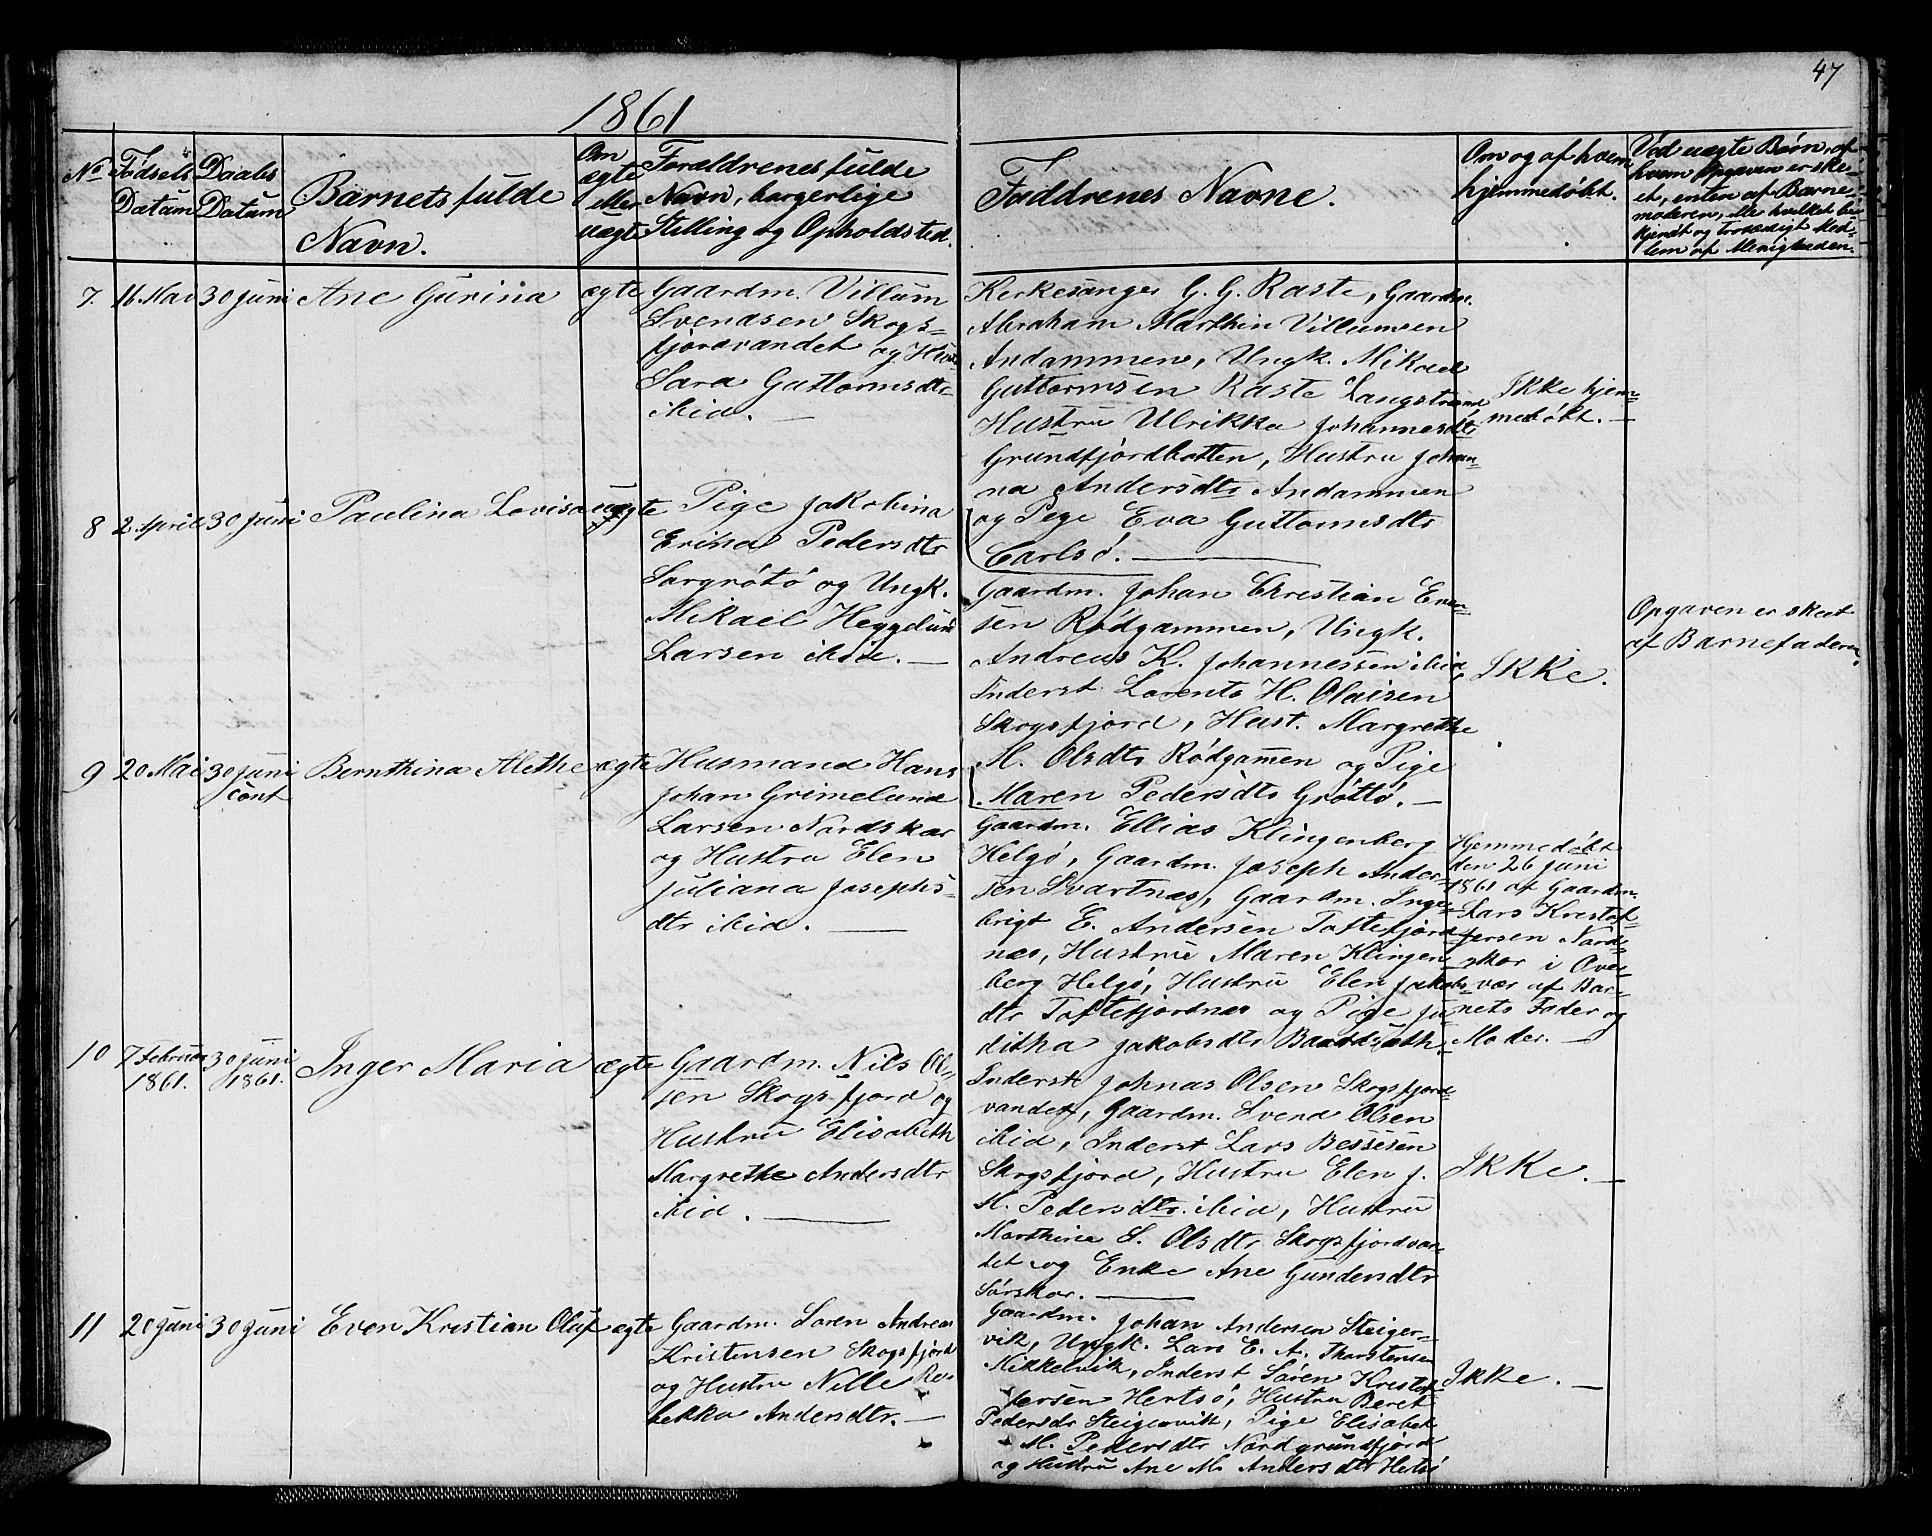 47
1861
No
Fødsels
Datum
Daabs
Datum
Barnets fulde
Navn.
Om
ægte
eller
uægte
Forældrenes fulde
Navn, borgerlige
Stilling og Opholdsted.
Faddrenes Navne.
Om og af hvem
hjemmedøbt.
Ved uægte Børn, af
hvem Opgaven er ske-
et, enten af Barne-
moderen, eller hvilket be-
kjendt og troværdigt Med-
lem af Menigheden.
7. 16 Mai 30 Juni Ane Gurina ægte
Gaardm. Villum
Svendsen Skogs-
fjordvandet og Hust
Sara Guttormsdtr
ibid. —
Kerkesanger G. G. Raste, Gaardm.
Abraham Marthin Villumsen
Andammen, Ungk. Mikael
Guttormsen Raste Langstrand
Hustru Ulrikka Johannesdtr
Grundfjordbotten, Hustru Johan-
na Andersdtr Andammen
og Pige Eva Guttormsdtr
Carlsø. —
Ikke hjem-
medøbt. —
8 2 April 30 Juni Paulina Lovisa uægte
Pige Jakobina
Erika Pedersdtr
Sørgrøtø og Ungk.
Mikael Heggelund
Larsen ibid. —
Gaardm. Johan Christian Even-
sen Rødgammen, Ungk.
Andreas K. Johannessen ibid,
Inderst Lorents H. Olaisen
Skogsfjord, Hust. Margrethe
M. Olsdtr Rødgamen og Pige
Maren Pedersdtr Grøttø. —
Ikke.
Opgaven er skeet
af Barnefaderen.
9 20 Mai 30 Juni
conf
Bernthina Alethe ægte
Husmand Hans
Johan Grimelund
Larsen Nordskar
og Hustru Elen
Juliana Josephs-
dtr ibid. —
Gaardm. Ellias Klingenberg
Helgø, Gaardm. Joseph Ander-
sen Svartnes, Gaardm. Inge-
brigt E. Andersen Toftefjord-
næs, Hustru Maren Klingen-
berg Helgø, Hustru Elen Jakobs-
dtr Toftefjordnes og Pige Ju
ditha Jakobsdtr
Hjemmedøbt
den 26 Juni
1861 af Gaardm.
Lars Kristof-
fersen Nord-
skar i Over-
vær af Bar-
nets Fader og
Moder. —
10 7 Februar
1861.
30 Juni
1861.
Inger Maria ægte
Gaardm. Nils Ol-
sen Skogsfjord og
Hustru Elisabeth
Margrethe Andersdtr
ibid. —
Inderst Johnas Olsen Skogsfjord-
vandet, Gaardm. Svend Olsen
ibid, Inderst Lars Bessesen
Skogsfjord, Hustru Elen J.
M. Pedersdtr. ibid, Hustru
Marthine S. Olsdtr Skogsfjordvan-
det og Enke Ane Gundersdtr
Sørskar. —
Ikke. —
11 20 Juni 30 Juni Even Kristian Oluf ægte
Gaardm. Søren Andreas
Kristensen Skogsfjord
og Hustru Nille Re-
bekka Andersdtr. —
Gaardm. Johan Andersen Steiger-
vik, Ungk. Lars E. A. Thorstensen
Mikkelvik, Inderst Søren Kristof-
fersen Hertsø, Hustru Beret
Pedersdr Steigervik, Pige Elisabet
M. Pedersdtr Nordgrundfjord
og Hustru Ane M. Andersdtr Hetsø
Ikke. —